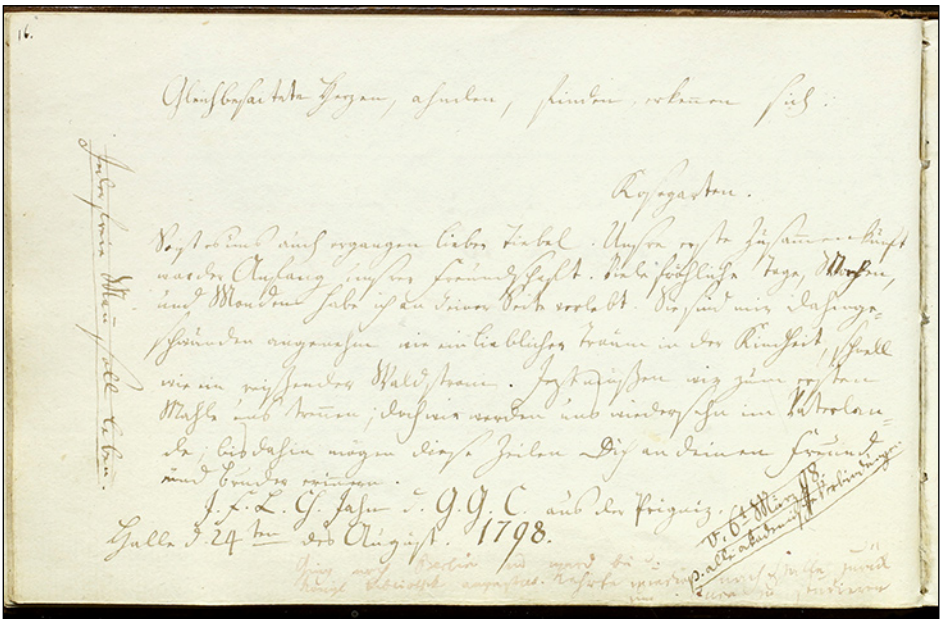 16.
Gleichbesaitete Herzen, ahnden, finden, erkennen sich.
Kosegarten.
So ist es uns auch ergangen lieber Tiebel. Unsre erste Zusammenkunft
war der Anfang unsrer Freundschaft. Viele fröhliche Tage, Wochen,
und Monden habe ich an deiner Seite verlebt. Sie sind mir dahinge-
schwunden angenehm wie ein lieblicher Traum in der Kindheit, schnell
wie ein reißender Waldstrom. Jezt müßen wir zum ersten
Mahle uns trennen; doch wir werden uns wiedersehn im Vaterlan-
de; bis dahin mögen diese Zeilen Dich an deinen Freund
und Bruder erinnern.
J. F. L. Ch. Jahn d. G. G. C. aus der Prigniz.
Halle d. 24ten des August. 1798.
Jeder freie Mann soll leben.
v. 6t März 98.
p. alle akademische Verbindungen
ging nach Berlin und ward bei d.
Königl. Bibliothek angestellt. Kehrte wieder nach Halle zurück
um zu studieren